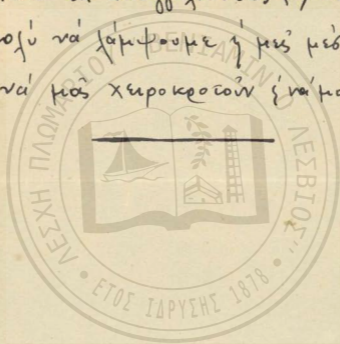 πολύ νά λάμψουμε ἤ μεῖς μέσ
νά μᾶς χειροκροτοῦν ἤ νά μα
ΛΕΣΧΗ ΠΛΩΜΑΡΙΟΥ "ΒΕΝΙΑΜΙΝ Ο ΛΕΣΒΙΟΣ"
• ΕΤΟΣ ΙΔΡΥΣΗΣ 1878 •